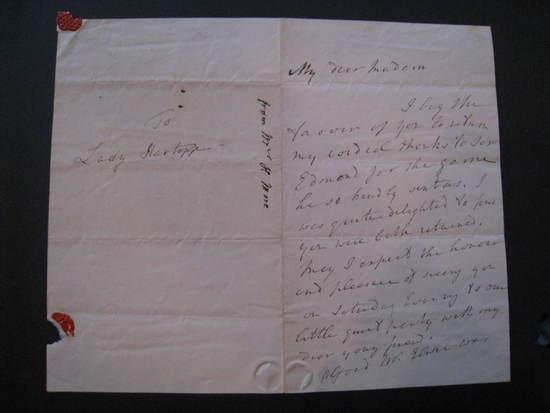 To
Lady Hartopp
from Mrs H More
My dear Madam
I beg the
favour of you to return
my cordial thanks to Sir
Edmond for the game
he so kindly sent us. I
was quite delighted to find
you were both returned.
May I expect the honour
and pleasure of seeing you
on Saturday Evening to our
little quiet party with my
dear young friend.
Good Mr. was